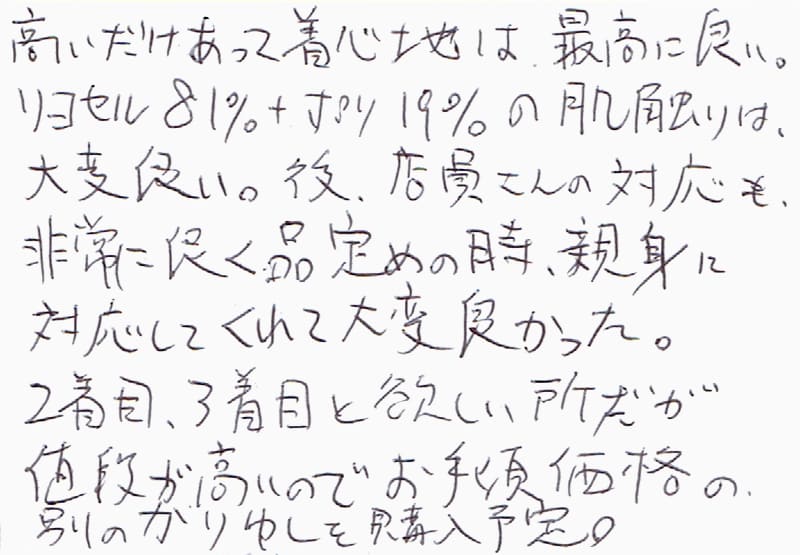 高いだけあって着心地は最高に良い。
リヨセル81%+ポリ19%の肌触りは、
大変良い。後、店員さんの対応も、
非常に良く品定めの時、親身に
対応してくれて大変良かった。
2着目、3着目と欲しい所だが
値段が高いのでお手頃価格の
別のかりゆしを購入予定。